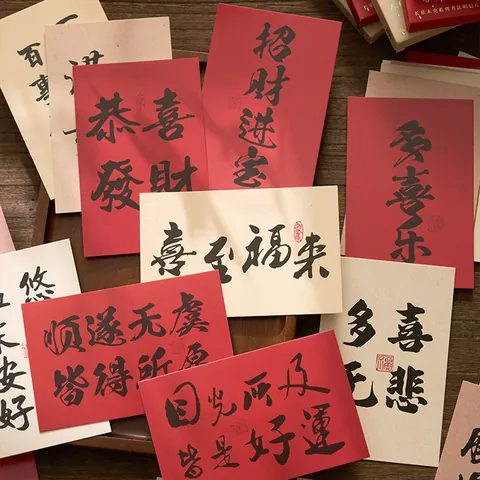 百事
恭喜
發財
招財進宝
多喜乐
喜至福来
顺遂无虞
皆得所愿
多喜
无悲
目光所及
皆是好運
悠
安好